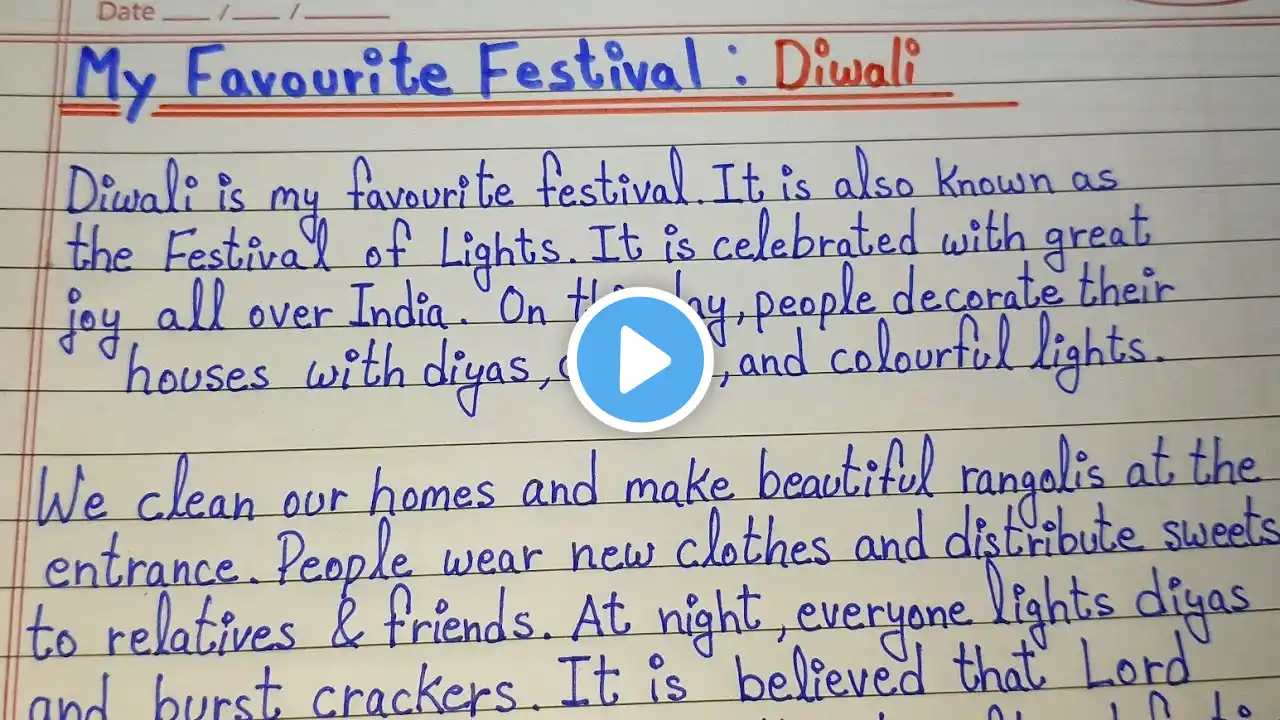 Date ___ / ___ / ______
My Favourite Festival : Diwali
Diwali is my favourite festival. It is also known as
the Festival of Lights. It is celebrated with great
joy all over India. On day, people decorate their
houses with diyas, , and colourful lights.
We clean our homes and make beautiful rangolis at the
entrance. People wear new clothes and distribute sweets
to relatives & friends. At night, everyone lights diyas
and burst crackers. It is believed that Lord